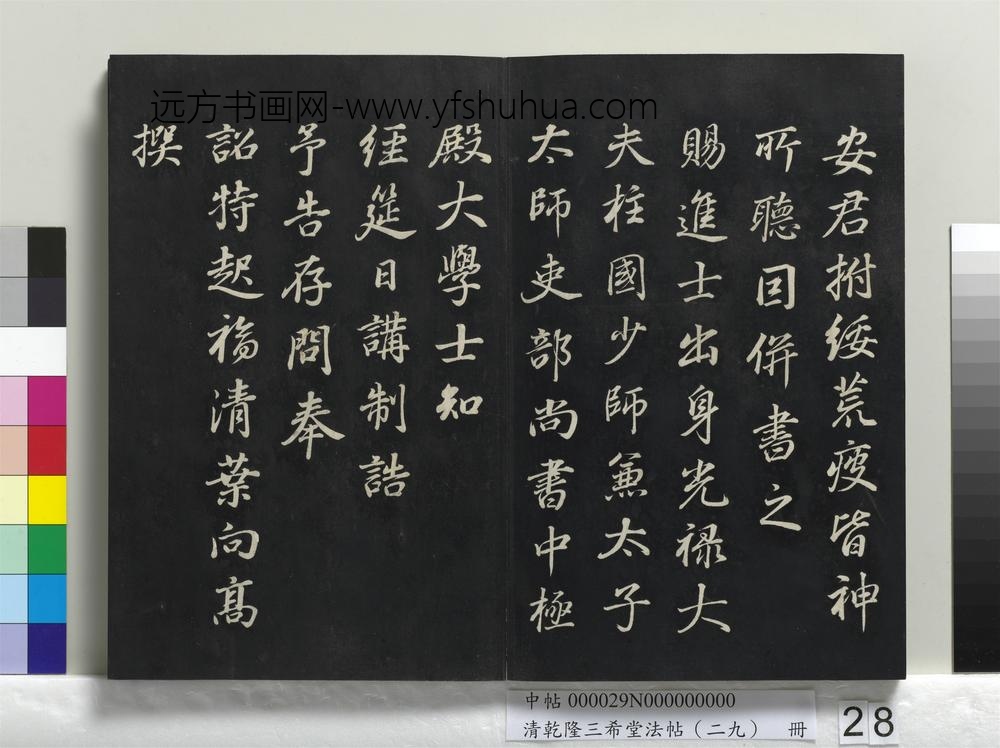 远方书画网-www.yfshuhua.com
安君拊綏荒疫皆神
所聽因併書之
賜進士出身光禄大
夫柱國少師兼太子
太師吏部尚書中極
殿大學士知
經筵日講制誥
予告存問奉
詔特起福清葉向髙
撰
中帖 000029N000000000
清乾隆三希堂法帖（二九） 冊
28